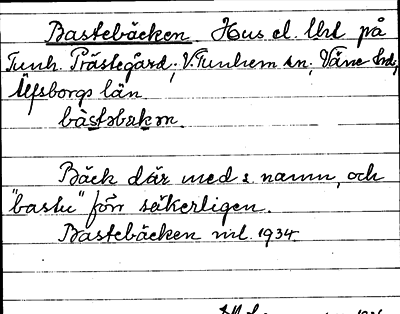 Bastebäcken. Hus el. lht på
Tunh. Prästegård; V. Tunhem sn; Väne hd,
Älfsborgs län.
bàstəbækən.
Bäck där med s. namn, och
"bastu" förr säkerligen.
Bastebäcken ml. 1934.